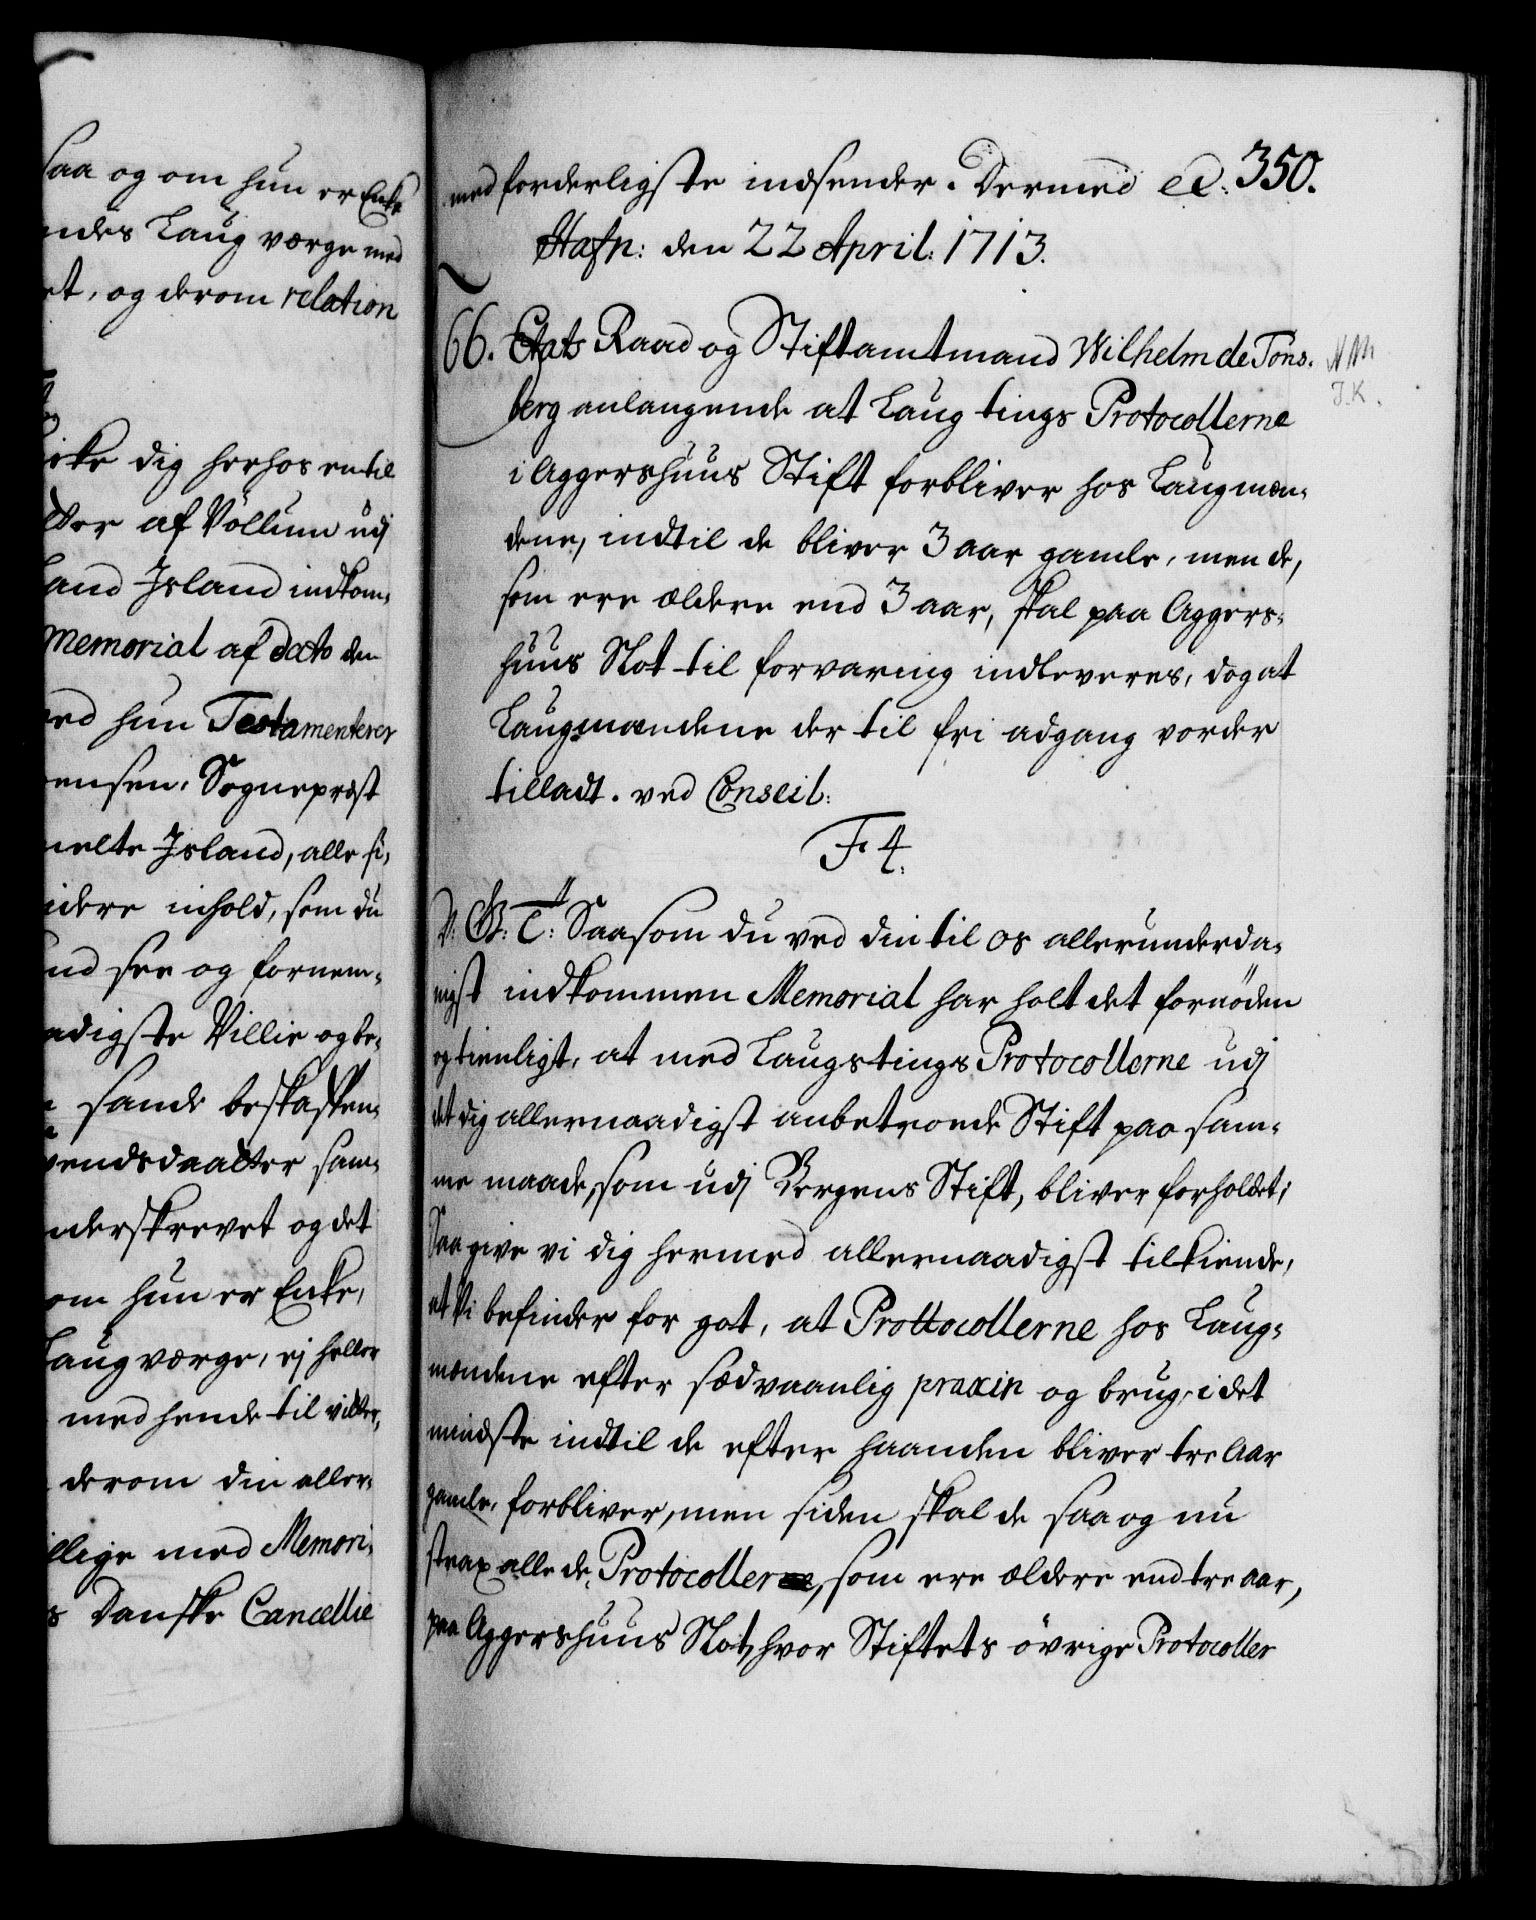 saa og om hun er Enke
ndes Laug værge med
et, og derom relation
ikke dig herhos en til
tter af Völlum udj
Land Island indkom-
Memorial af dato den
ed hun Testamenterer
ensen, Sognepræst
melte Island, alle si,
idere inhold, som du
nd see og fornem-
adigste Villie og be-
sande beskaffen-
vendsdaatter sam-
nderskrevet og det
om hun er Enke,
Laug værge, ej heller
med hende til
derom din aller-
llige med Memori-
s Danske Cancellie
350.
med forderligste indsender. Dermed &c:
Hafn: den 22 April: 1713.
66. Etats Raad og Stiftamtmand Wilhelm de Tons-
berg anlangende at Laug tings Protocollerne
i Aggershuus Stift forbliver hos Laugmæn-
dene, indtil de bliver 3 aar gamle, men de,
som ere ældere end 3 aar, skal paa Aggers-
huus Slot til forvaring indleveres, dog at
Laugmændene der til fri adgang vorder
tilladt. ved Conseil:
F. 4.
V: G: T: Saasom du ved din til os allerunderda-
nigst indkommen Memorial har holt det fornöden
og tienligt, at med Laugstings Protocollerne udj
det dig allernaadigst anbetroede Stift paa sam-
me maade, som udj Bergens Stift, bliver forholdet;
Saa give vi dig hermed allernaadigst tilkiende,
at Vi befinder for got, at Prottocollerne hos Laug-
mændene efter sædvaanlig praxin og brug, i det
mindste indtil de efter haanden bliver tre Aar
gamle, forbliver, men siden skal de saa og nu
strax alle de Protocoller, som ere ældere end tre aar,
paa Aggershuus Slot, hvor Stiftets övrige Protocoller